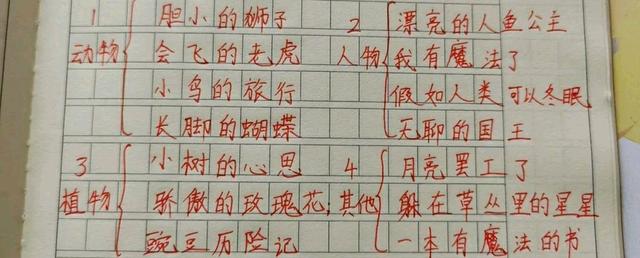 1
动物
胆小的狮子
会飞的老虎
小鸟的旅行
长脚的蝴蝶
2
人物
漂亮的人鱼公主
我有魔法了
假如人类可以冬眠
无聊的国王
3
植物
小树的心思
骄傲的玫瑰花;
豌豆历险记
4
其他
月亮罢工了
躲在草丛里的星星
一本有魔法的书